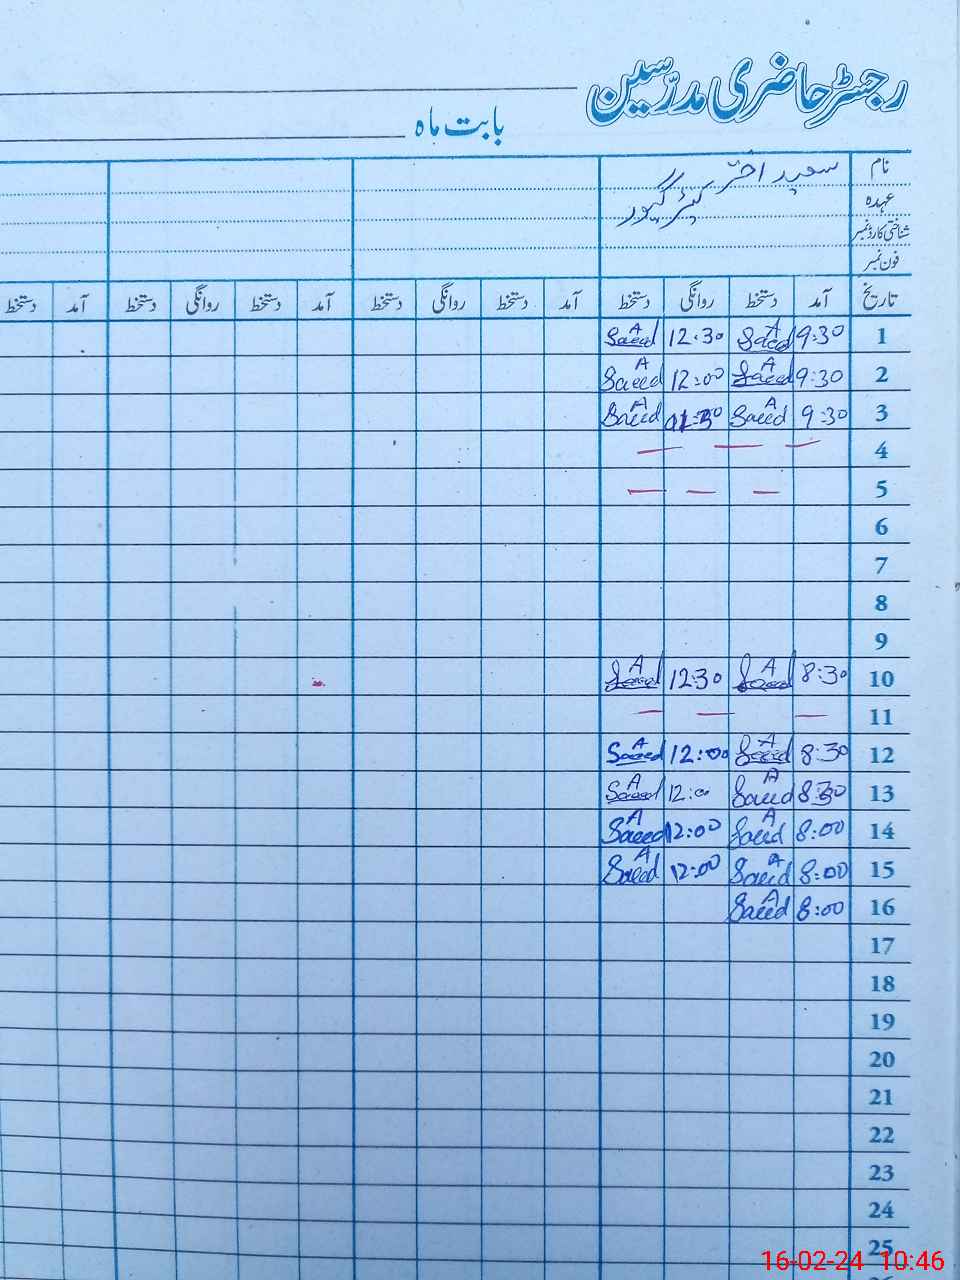 رجسٹر حاضری مدرّسین
بابت ماہ
نام سعید اختر
عہدہ کیئر گیور
شناختی کارڈ نمبر
فون نمبر
تاریخ آمد دستخط روانگی دستخط آمد دستخط روانگی دستخط آمد دستخط روانگی دستخط آمد دستخط
1 9:30 A Saeed 12:30 A Saeed
2 9:30 A Saeed 12:00 A Saeed
3 9:30 A Saeed A Saeed
4 — — —
5 — — —
6
7
8
9
10 8:30 A Saeed 12:30 A Saeed
11 — — —
12 8:30 A Saeed 12:00 A Saeed
13 8:30 A Saeed 12:00 A Saeed
14 8:00 A Saeed 12:00 A Saeed
15 8:00 A Saeed 12:00 A Saeed
16 8:00 A Saeed
17
18
19
20
21
22
23
24
25
16-02-24 10:46